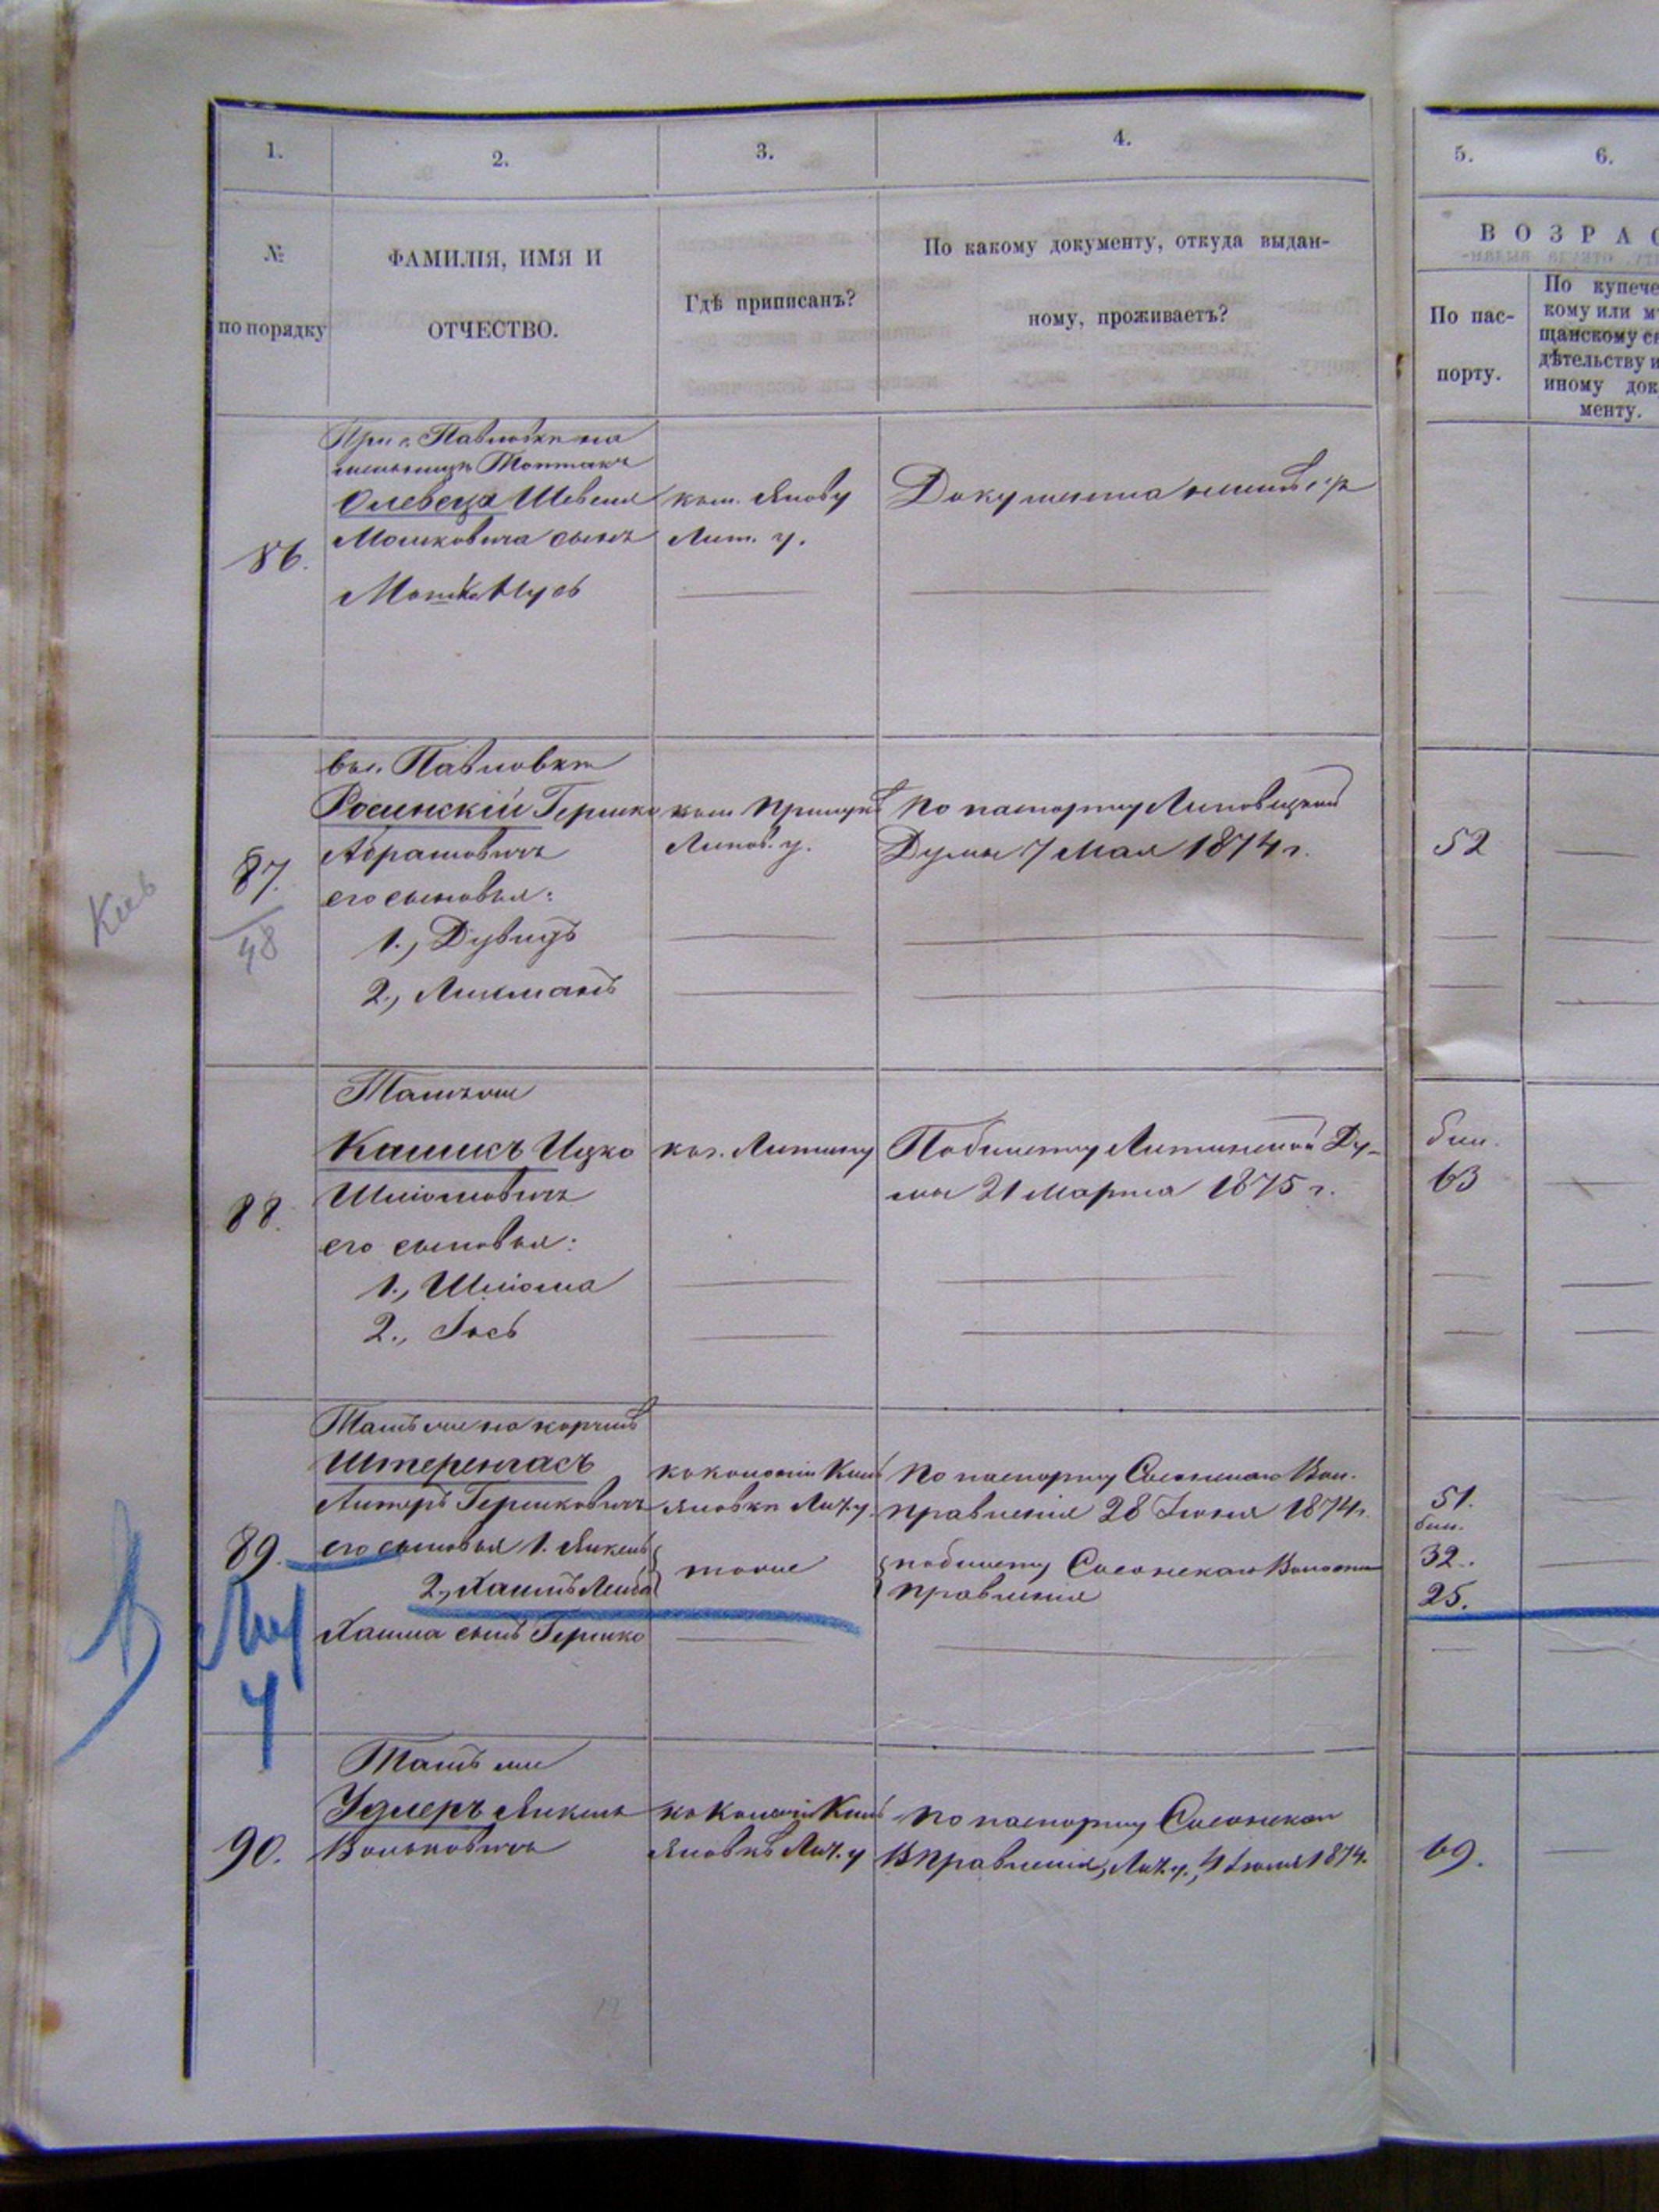 1.
2.
3.
4.
5.
6.
№
по порядку
ФАМИЛІЯ, ИМЯ И
ОТЧЕСТВО.
Гдѣ приписанъ?
По какому документу, откуда выдан-
ному, проживаетъ?
ВОЗРАС
По пас-
порту.
По купече
кому или мѣ
щанскому св
дѣтельству и
иному док
менту.
При с. Павловкѣ на
мельницѣ
Шевеля
Мошковича сынъ
Мошко Нусь
86.
ком. Янову
Лит. у.
Документа неимѣ
Вы. Павловкѣ
Росинскій Гершко
Абрамовичъ
его сыновья:
1., Дувидъ
2., Лихманъ
87.
48
Кіев
Липов. у.
По паспорту Липовецкой
Думы 7 Мая 1874 г.
52
Тамъ же
Кашисъ Ицко
Шліомовичъ
его сыновья:
1., Шліома
2., Іось
88.
к г. Литину
По билету Литинской Ду-
мы 21 Марта 1875 г.
бил.
63
Тамъ же на корчмѣ
Штеренгасъ
Гершковичъ
его сыновья 1. Янкель
2., Хаимъ Лейба
Хаима сынъ Гершко
89.
Лит
у
къ колоніи
Яновкѣ Лит. у.
тоже
По паспорту Сосонскаго Вол.
правленія 28 Іюня 1874 г.
по билету Сосонскаго Волостн
правленія
51.
бил.
32.
25.
Тамъ же
Удлеръ Янкель
Вольковичъ
90.
къ колоніи
Яновкѣ Лит. у
По паспорту Сосонскаго
В правленія, Лит. у., 4 Іюля 1874.
69.